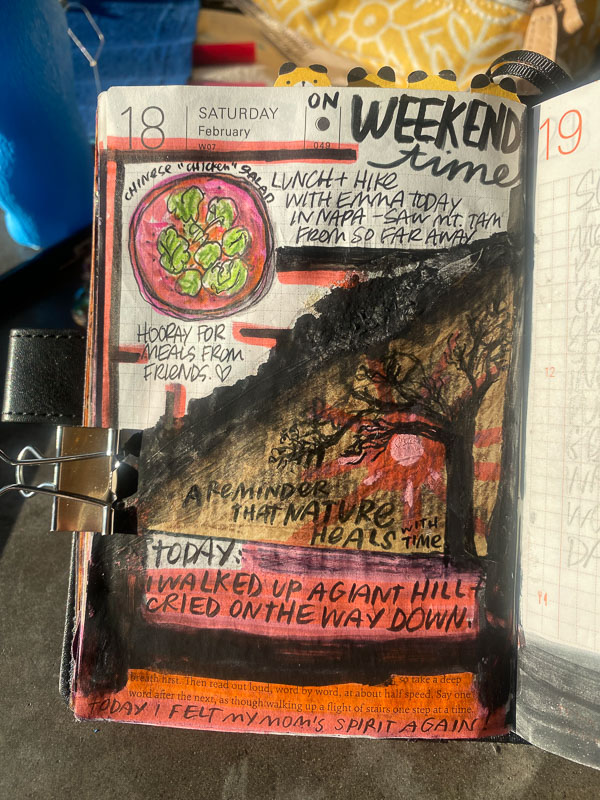 18
SATURDAY
February
W07
049
ON
WEEKEND
time
19
CHINESE "CHICKEN" SALAD
LUNCH + HIKE
WITH EMMA TODAY
IN NAPA - SAW MT. TAM
FROM SO FAR AWAY
HOORAY FOR
MEALS FROM
FRIENDS. ♡
A REMINDER
THAT NATURE
HEALS WITH
TIME
TODAY:
I WALKED UP A GIANT HILL +
CRIED ON THE WAY DOWN.
breath first. Then read out loud, word by word, at about half speed. Say one
so take a deep
word after the next, as though walking up a flight of stairs one step at a time.
TODAY I FELT MY MOM'S SPIRIT AGAIN!
12